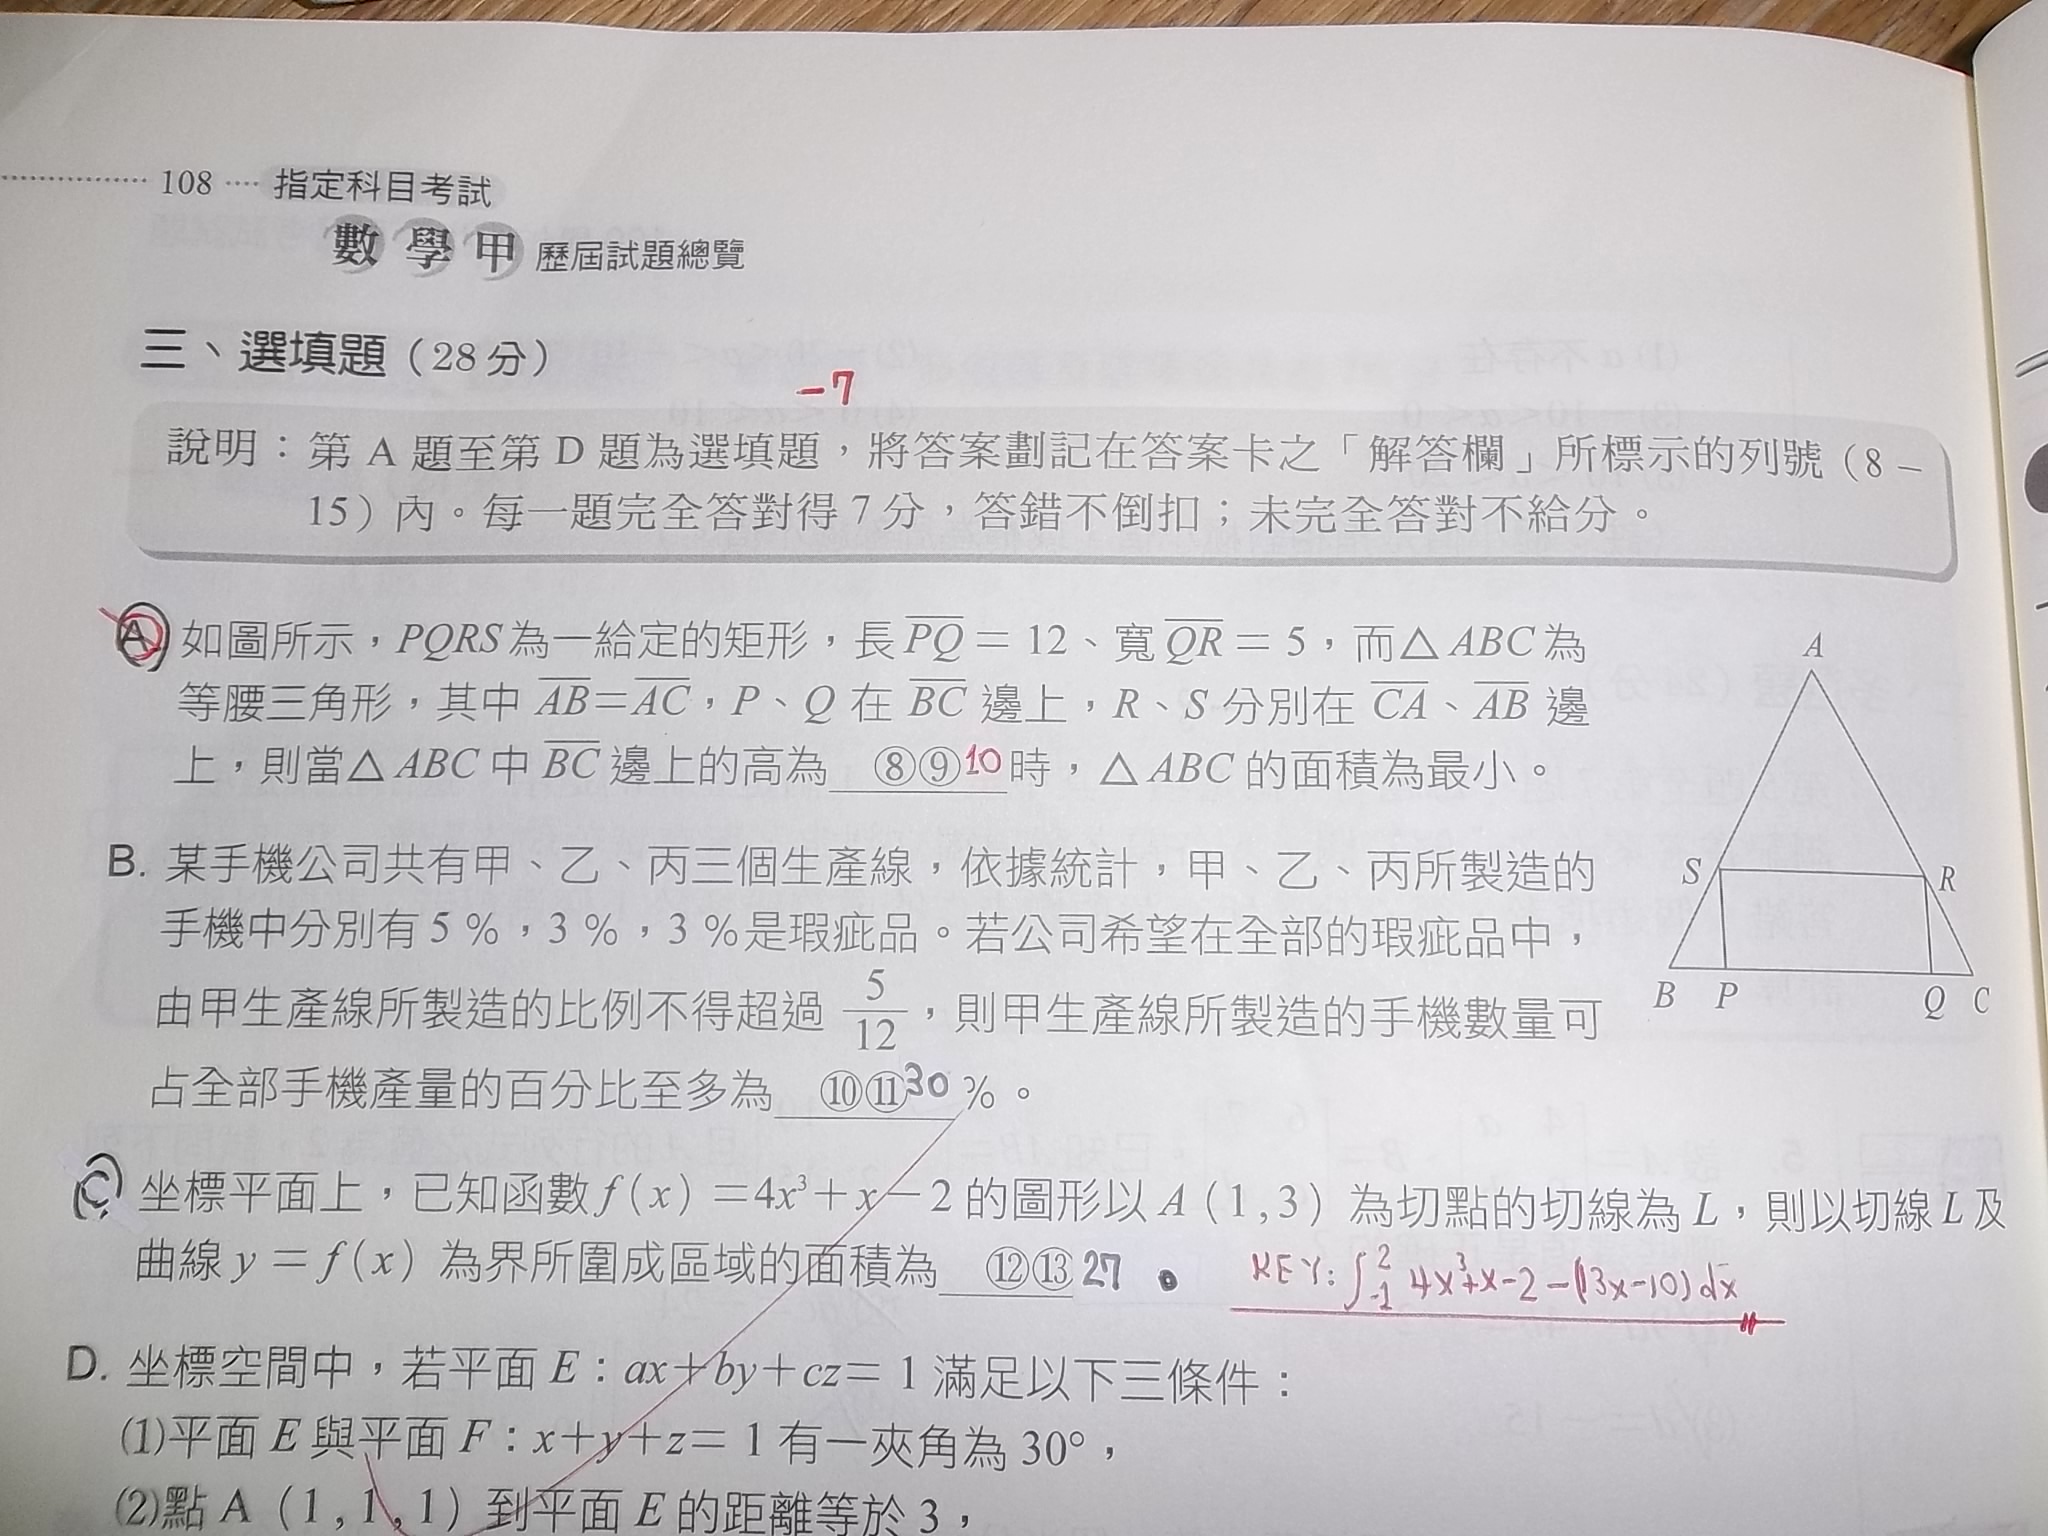 108 指定科目考試
數學甲 歷屆試題總覽
三、選填題（28分）
-7
說明：第 A 題至第 D 題為選填題，將答案劃記在答案卡之「解答欄」所標示的列號（8－
15）內。每一題完全答對得 7 分，答錯不倒扣；未完全答對不給分。
A 如圖所示，PQRS為一給定的矩形，長 PQ = 12、寬 QR = 5，而△ABC 為
等腰三角形，其中 AB=AC，P、Q 在 BC 邊上，R、S 分別在 CA、AB 邊
上，則當△ABC 中 BC 邊上的高為 ⑧⑨10 時，△ABC 的面積為最小。
A
S
R
B P Q C
B. 某手機公司共有甲、乙、丙三個生產線，依據統計，甲、乙、丙所製造的
手機中分別有 5 %，3 %，3 %是瑕疵品。若公司希望在全部的瑕疵品中，
由甲生產線所製造的比例不得超過 5/12，則甲生產線所製造的手機數量可
占全部手機產量的百分比至多為 ⑩⑪30 %。
C 坐標平面上，已知函數 f(x) =4x³+x－2 的圖形以 A（1,3）為切點的切線為 L，則以切線 L 及
曲線 y = f(x) 為界所圍成區域的面積為 ⑫⑬27 。
KEY: ∫₋₁² 4x³+x-2-(13x-10)dx
D. 坐標空間中，若平面 E：ax+by+cz= 1 滿足以下三條件：
(1)平面 E 與平面 F：x+y+z= 1 有一夾角為 30°，
(2)點 A（1,1,1）到平面 E 的距離等於 3，